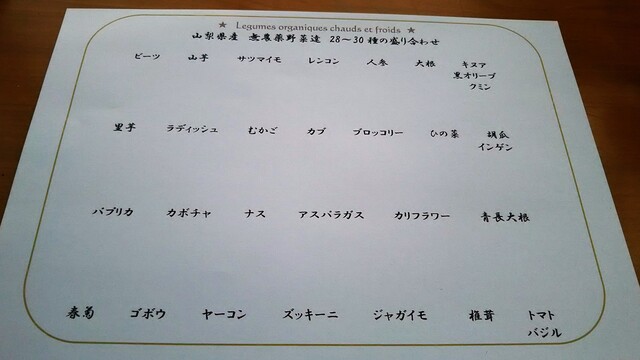 ★ Legumes organiques chauds et froids ★
山梨県産 無農薬野菜達 28～30種の盛り合わせ
ビーツ 山芋 サツマイモ レンコン 人参 大根 キヌア
黒オリーブ
クミン
里芋 ラディッシュ むかご カブ ブロッコリー ひの菜 胡瓜
インゲン
パプリカ カボチャ ナス アスパラガス カリフラワー 青長大根
春菊 ゴボウ ヤーコン ズッキーニ ジャガイモ 椎茸 トマト
バジル